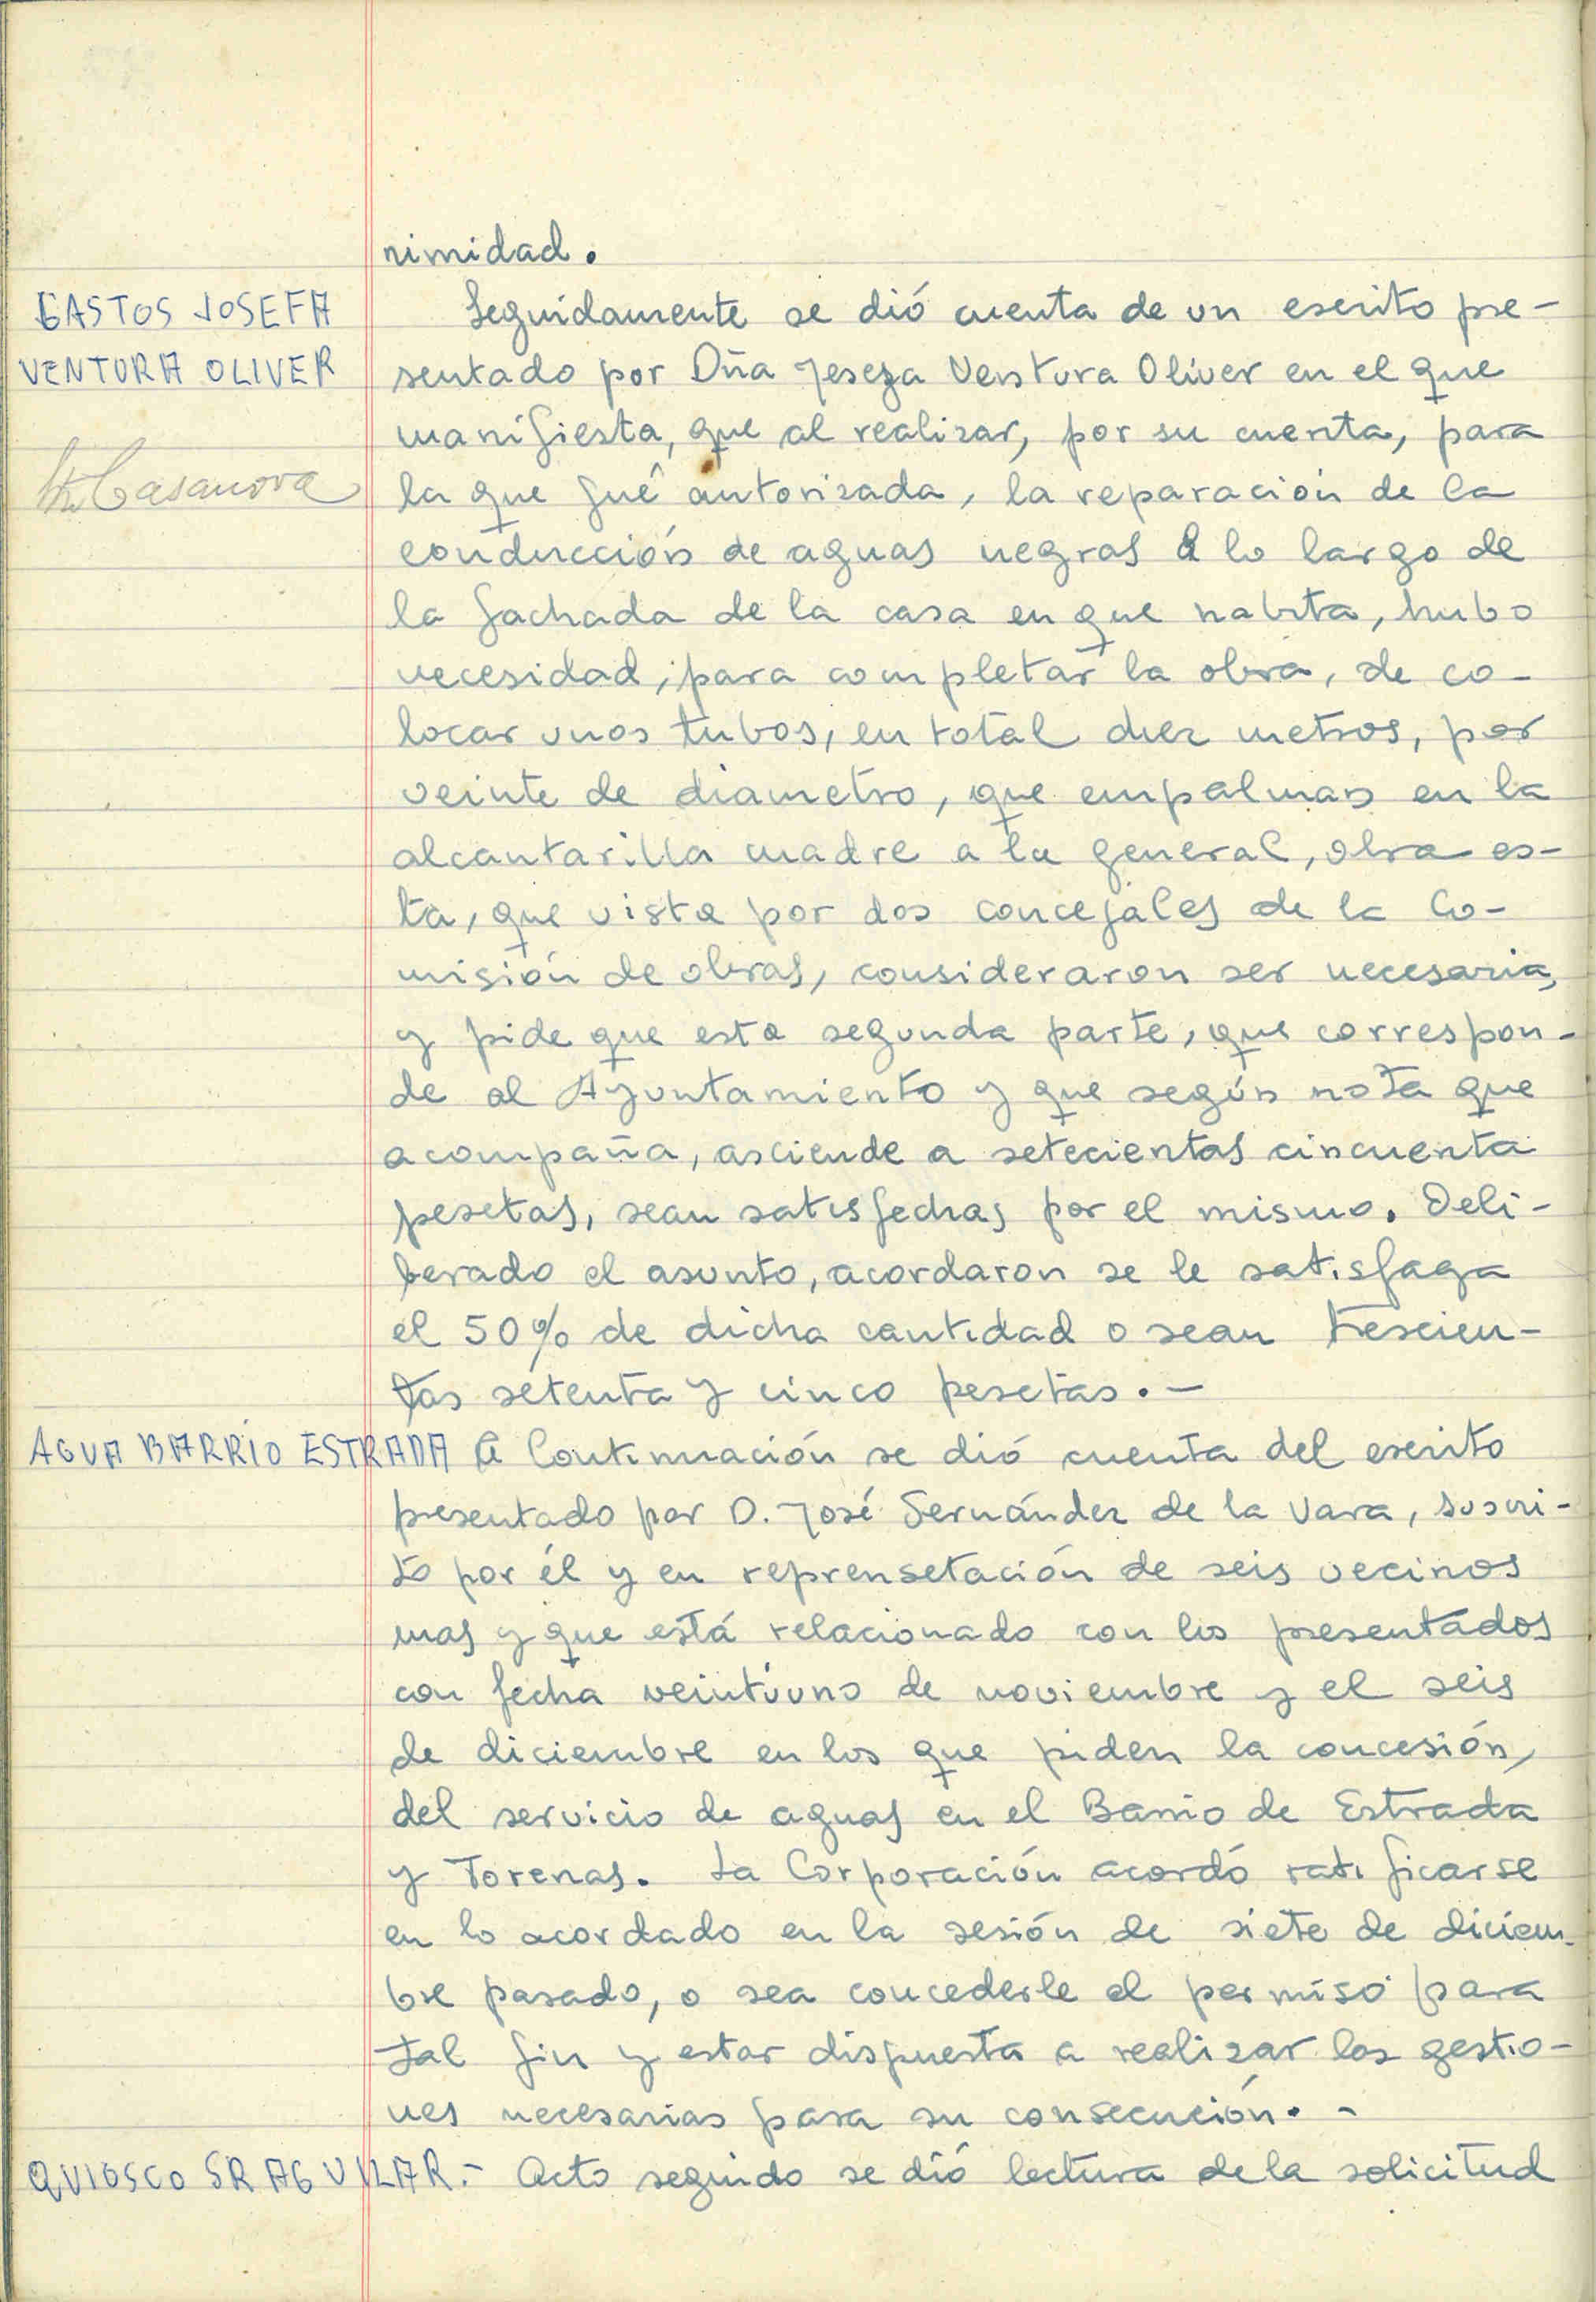 nimidad.
GASTOS JOSEFA
VENTURA OLIVER
Casanova
Seguidamente se dió cuenta de un escrito pre-
sentado por Dña Ventura Oliver en el que
manifiesta, que al realizar, por su cuenta, para
la que fué autorizada, la reparación de la
conducción de aguas negras a lo largo de
la fachada de la casa en que habita, hubo
necesidad, para completar la obra, de co-
locar unos tubos, en total diez metros, por
veinte de diametro, que empalman en la
alcantarilla madre a la general, obra es-
ta, que vista por dos concejales de la Co-
misión de obras, consideraron ser necesaria,
y pide que esta segunda parte, que correspon-
de al Ayuntamiento y que según nota que
acompaña, asciende a setecientas cincuenta
pesetas, sean satisfechas por el mismo. Deli-
berado el asunto, acordaron se le satisfaga
el 50% de dicha cantidad o sean trescien-
tas setenta y cinco pesetas.-
AGUA BARRIO ESTRADA A Continuación se dió cuenta del escrito
presentado por D. José Fernández de la Vara, suscri-
to por él y en reprensetación de seis vecinos
mas y que está relacionado con los presentados
con fecha veintiuno de noviembre y el seis
de diciembre en los que piden la concesión,
del servicio de aguas en el Barrio de Estrada
y Torenas. La Corporación acordó ratificarse
en lo acordado en la sesión de siete de diciem-
bre pasado, o sea concederle el permiso para
tal fin y estar dispuesta a realizar las gestio-
nes necesarias para su consecución.-
QUIOSCO SR AGUILAR.- Acto seguido se dió lectura de la solicitud